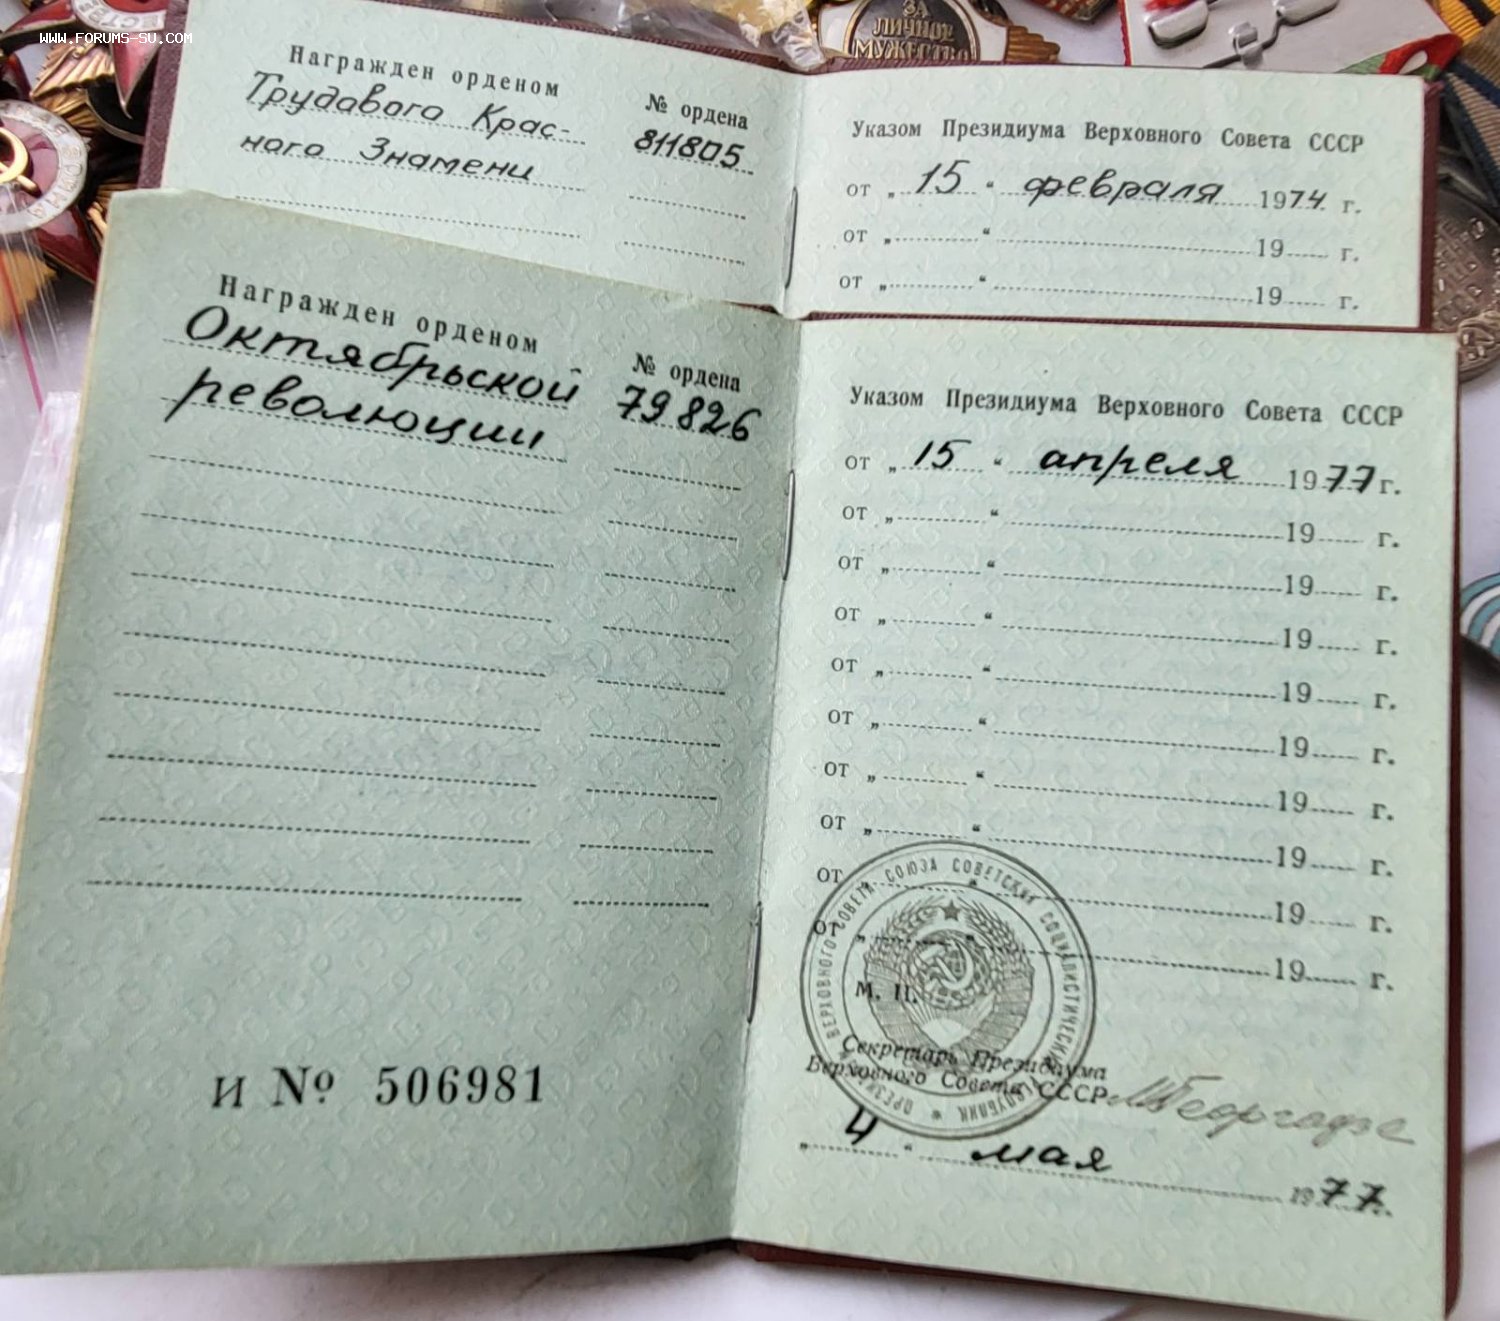 WWW.FORUMS-SU.COM
ЗА
ЛИЧНОЕ
МУЖЕСТВО
Награжден орденом
Трудавого Крас-
ного Знамени
№ ордена
811805
Указом Президиума Верховного Совета СССР
от „ 15 “ февраля 1974 г.
от „ “ 19 г.
от „ “ 19 г.
Награжден орденом
Октябрьской
революции
№ ордена
79826
И № 506981
Указом Президиума Верховного Совета СССР
от „ 15 “ апреля 1977 г.
от „ “ 19 г.
от „ “ 19 г.
от „ “ 19 г.
от „ “ 19 г.
от „ “ 19 г.
от „ “ 19 г.
от „ “ 19 г.
от „ “ 19 г.
от „ “ 19 г.
ПРЕЗИДИУМ ВЕРХОВНОГО СОВЕТА СОЮЗА СОВЕТСКИХ СОЦИАЛИСТИЧЕСКИХ РЕСПУБЛИК
М. П.
Секретарь Президиума
Верховного Совета СССР
М Георгадзе
„ 4 “ мая 1977.